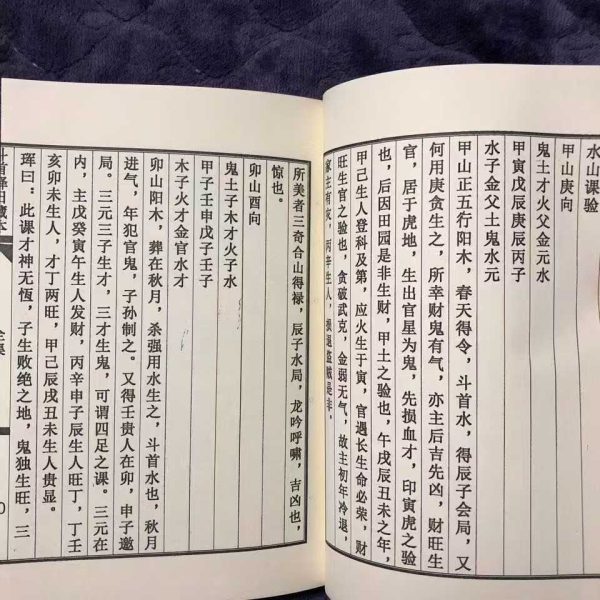 水山课验
甲山庚向
鬼土才火父金元水
甲寅戊辰庚辰丙子
水子金父土鬼水元
甲山正五行阳木，春天得令，斗首水，得辰子会局，又
何用庚贪生之，所幸财鬼有气，亦主后吉先凶，财旺生
官，居于虎地，生出官星为鬼，先损血才，印寅虎之验
也，后因田园是非生财，甲土之验也，午戌辰丑未之年，
甲己生人登科及第，应火生于寅，官遇长生命必荣，财
旺生官之验也，贪破武克，金弱无气，故主初年冷退，
家主有亥，丙辛生人，损退盗贼是非，
所美者三奇合山得禄，辰子水局，龙吟呼啸，吉凶也，
惊也。
卯山酉向
鬼土子木才火子水
甲子壬申戊子壬子
木子火才金官水才
卯山阳木，葬在秋月，杀强用水生之，斗首水也，秋月
进气，年犯官鬼，子孙制之。又得壬贵人在卯，申子邀
局。三元三子生才，三才生鬼，可谓四足之课。三元在
内，主戊癸寅午生人发财，丙辛申子辰生人旺丁，丁壬
亥卯未生人，才丁两旺，甲己辰戌丑未生人贵显。
珲曰：此课才神无恆，子生败绝之地，鬼独生旺，三
全集